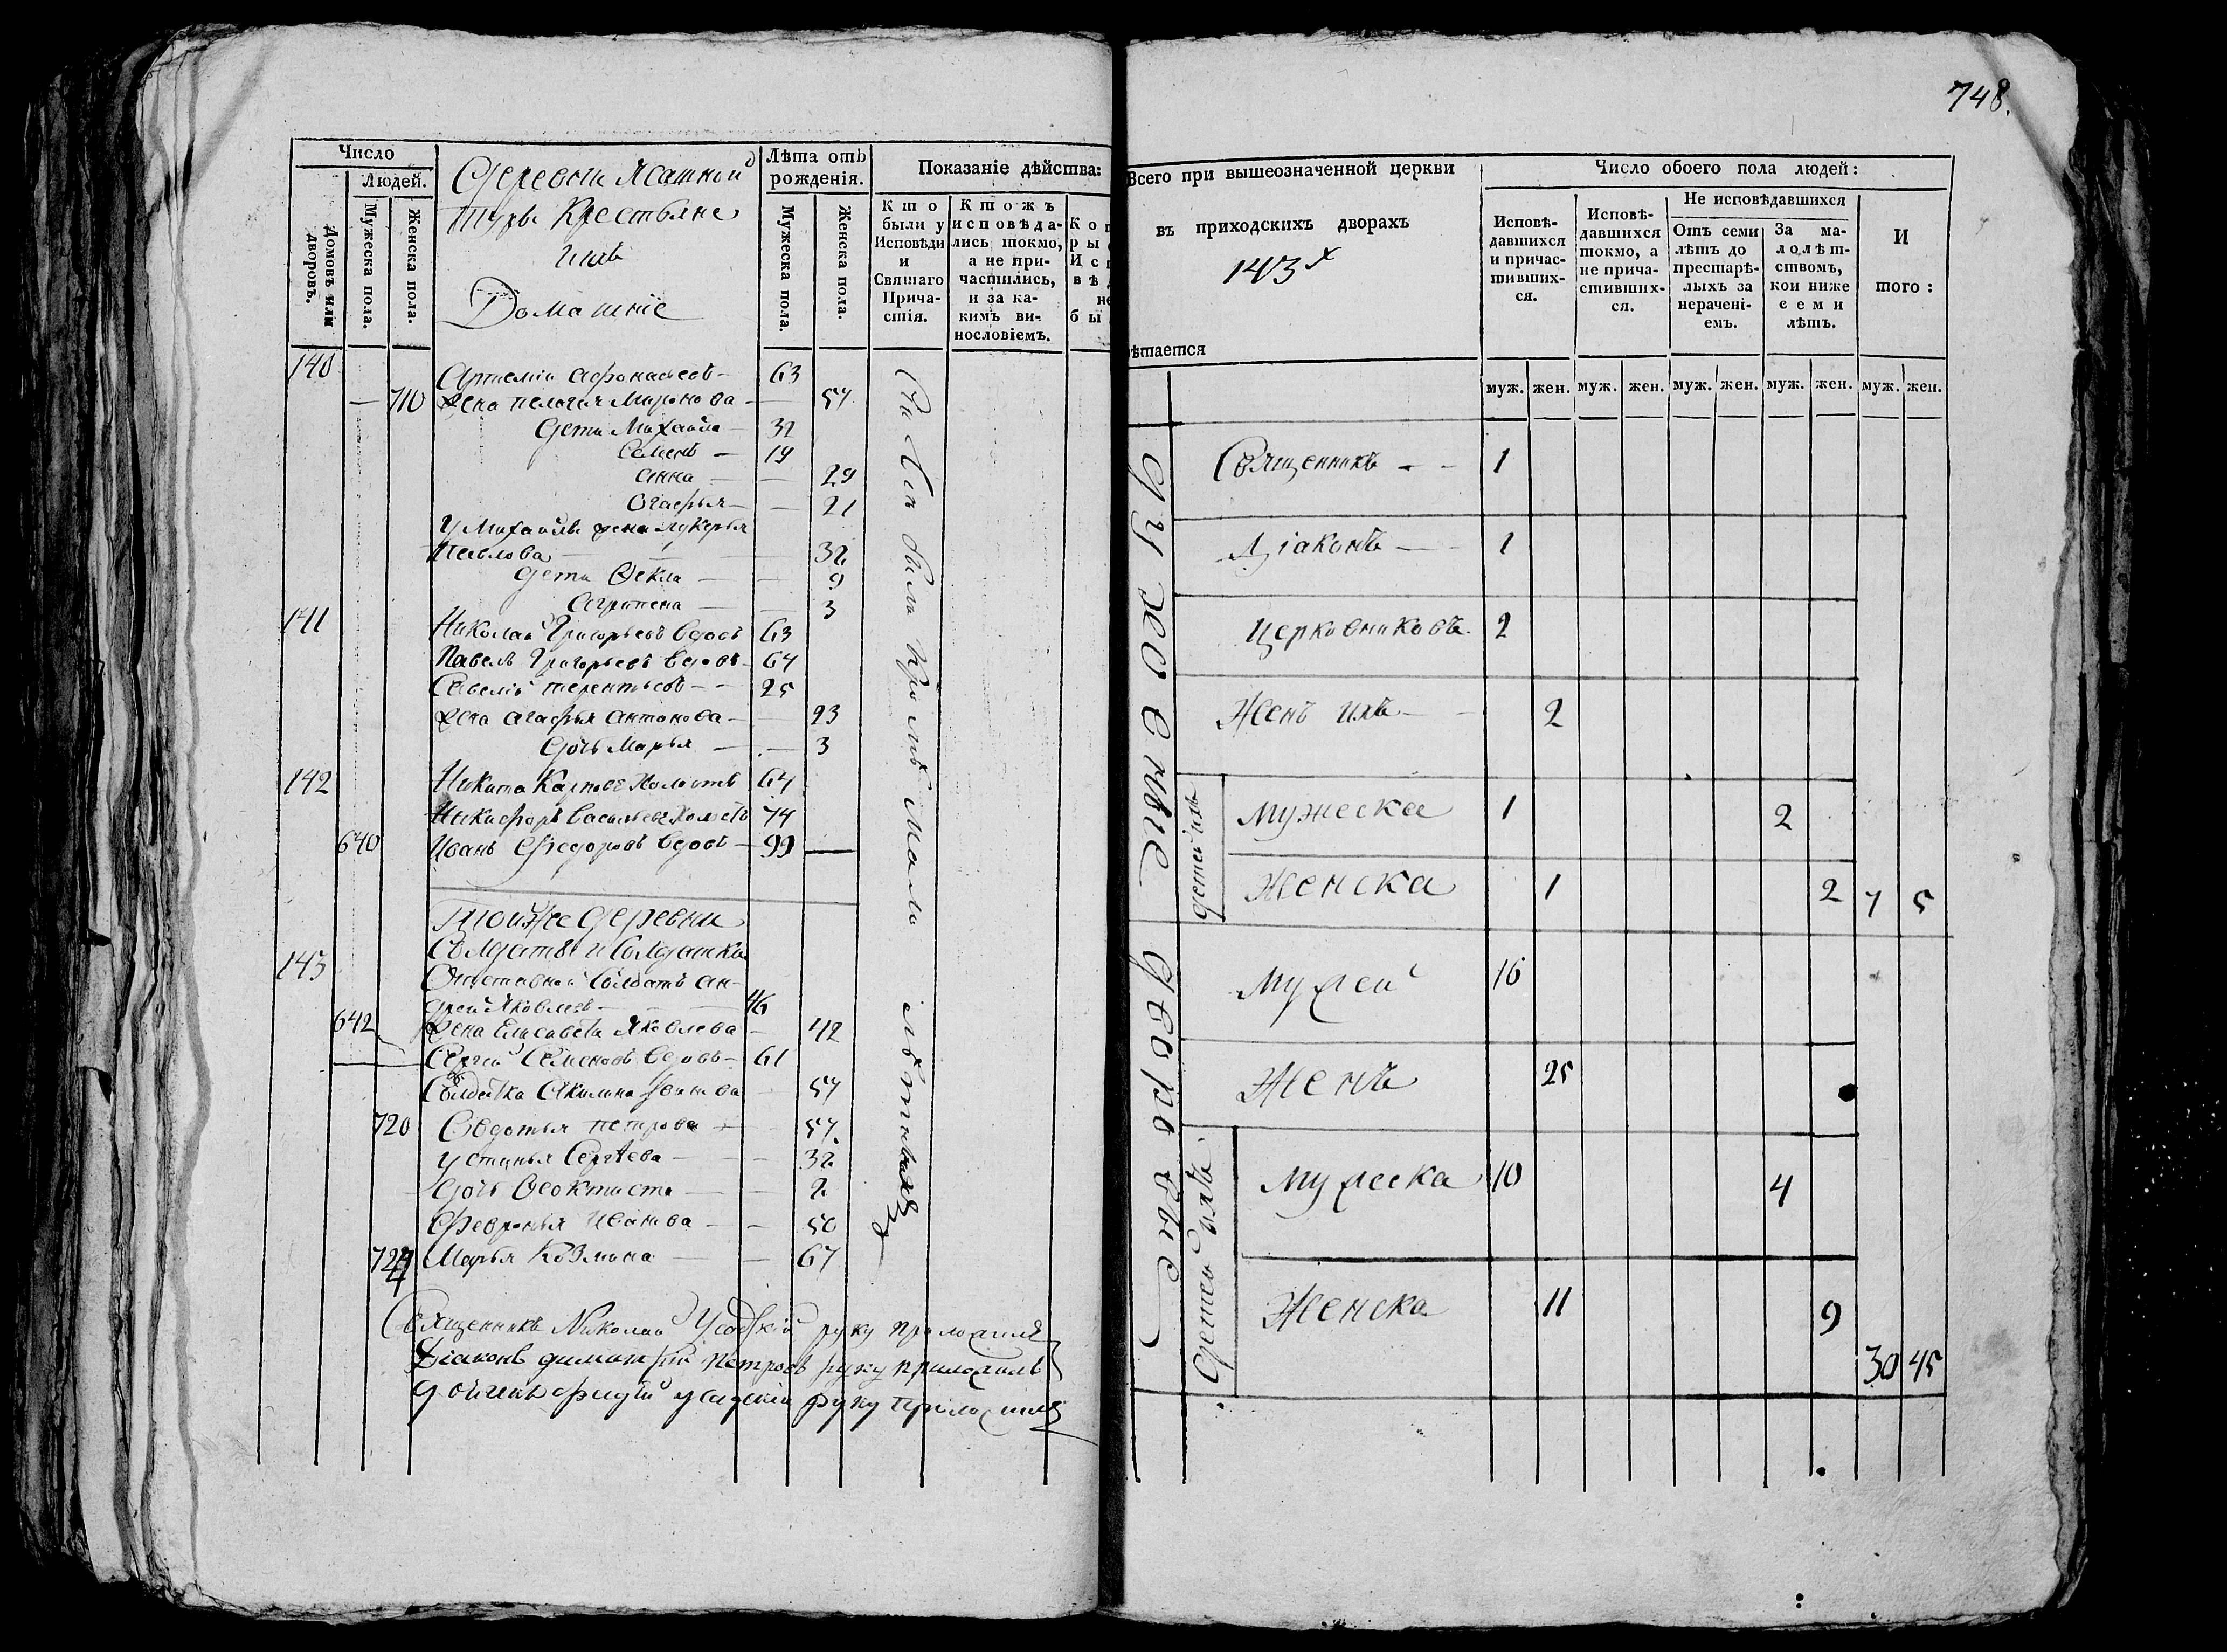 748.
Число
Людей.
Домовъ или дворовъ.
Мужеска пола.
Женска пола.
Деревни Ясашной
туры Крестьяне
ихъ
Домашніе
Лѣта отъ
рожденія.
Мужеска пола.
Женска пола.
Показаніе дѣйства:
Кто
были у
Исповѣди
и
Святаго
Прича-
стія.
Ктожъ
исповѣда-
лись токмо,
а не при-
частились,
и за ка-
кимъ ви-
нословіемъ.
140 Артемiи Афонасьевъ 63
710 Жена Пелагея Миронова 57
дети Михаила 32
Семенъ 19
Анна 29
Огафья 21
У Михаила жена Лукерья
Павлова 32
дети Фекла 9
Агрипена 3
141 Николай Григорьевъ вдовъ 63
Павелъ Григорьевъ вдовъ 64
Савелiй Терентьевъ 25
Жена Агафья Антонова 23
дочь Марья 3
142 Никита Карповъ холостъ 64
Никифоръ Васильевъ холостъ 74
640 Иванъ Федоровъ вдовъ 99
Тойже деревни
Солдаты и Солдатки
143 Отставной Солдатъ Ан-
дрей Яковлевъ 46
642 Жена Елисавета Яковлева 42
Сергiй Семеновъ вдовъ 61
Солдатка Акилина Иванова 57
720 Овдотья Петрова 57
Устинья Сергѣева 32
дочь Феоктиста 2
Февронья Иванова 50
724 Марья Козмина 67
были кромѣ мало лѣтныхъ
Священникъ Николай руку приложилъ
Дiаконъ Димитрiй Петровъ руку приложилъ
руку приложилъ
Всего при вышеозначенной церкви
въ приходскихъ дворахъ
143
ѣтается
Число обоего пола людей:
Исповѣ-
давшихся
и причас-
тивших-
ся.
Исповѣ-
давшихся
токмо, а
не прича-
стивших-
ся.
Не исповѣдавшихся
Отъ семи
лѣтъ до
престарѣ-
лыхъ за
нерачені-
емъ.
За ма-
лолѣт-
ствомъ,
кои ниже
семи
лѣтъ.
И
того:
муж. жен. муж. жен. муж. жен. муж. жен. муж. жен.
Духовные
Священникъ 1
Дiаконъ 1
Церковниковъ 2
Женъ ихъ 2
детей ихъ
Мужеска 1 2
Женска 1 2 7 5
дворовые
Мужей 16
Женъ 25
Детей ихъ
Мужеска 10 4
Женска 11 9
30 45